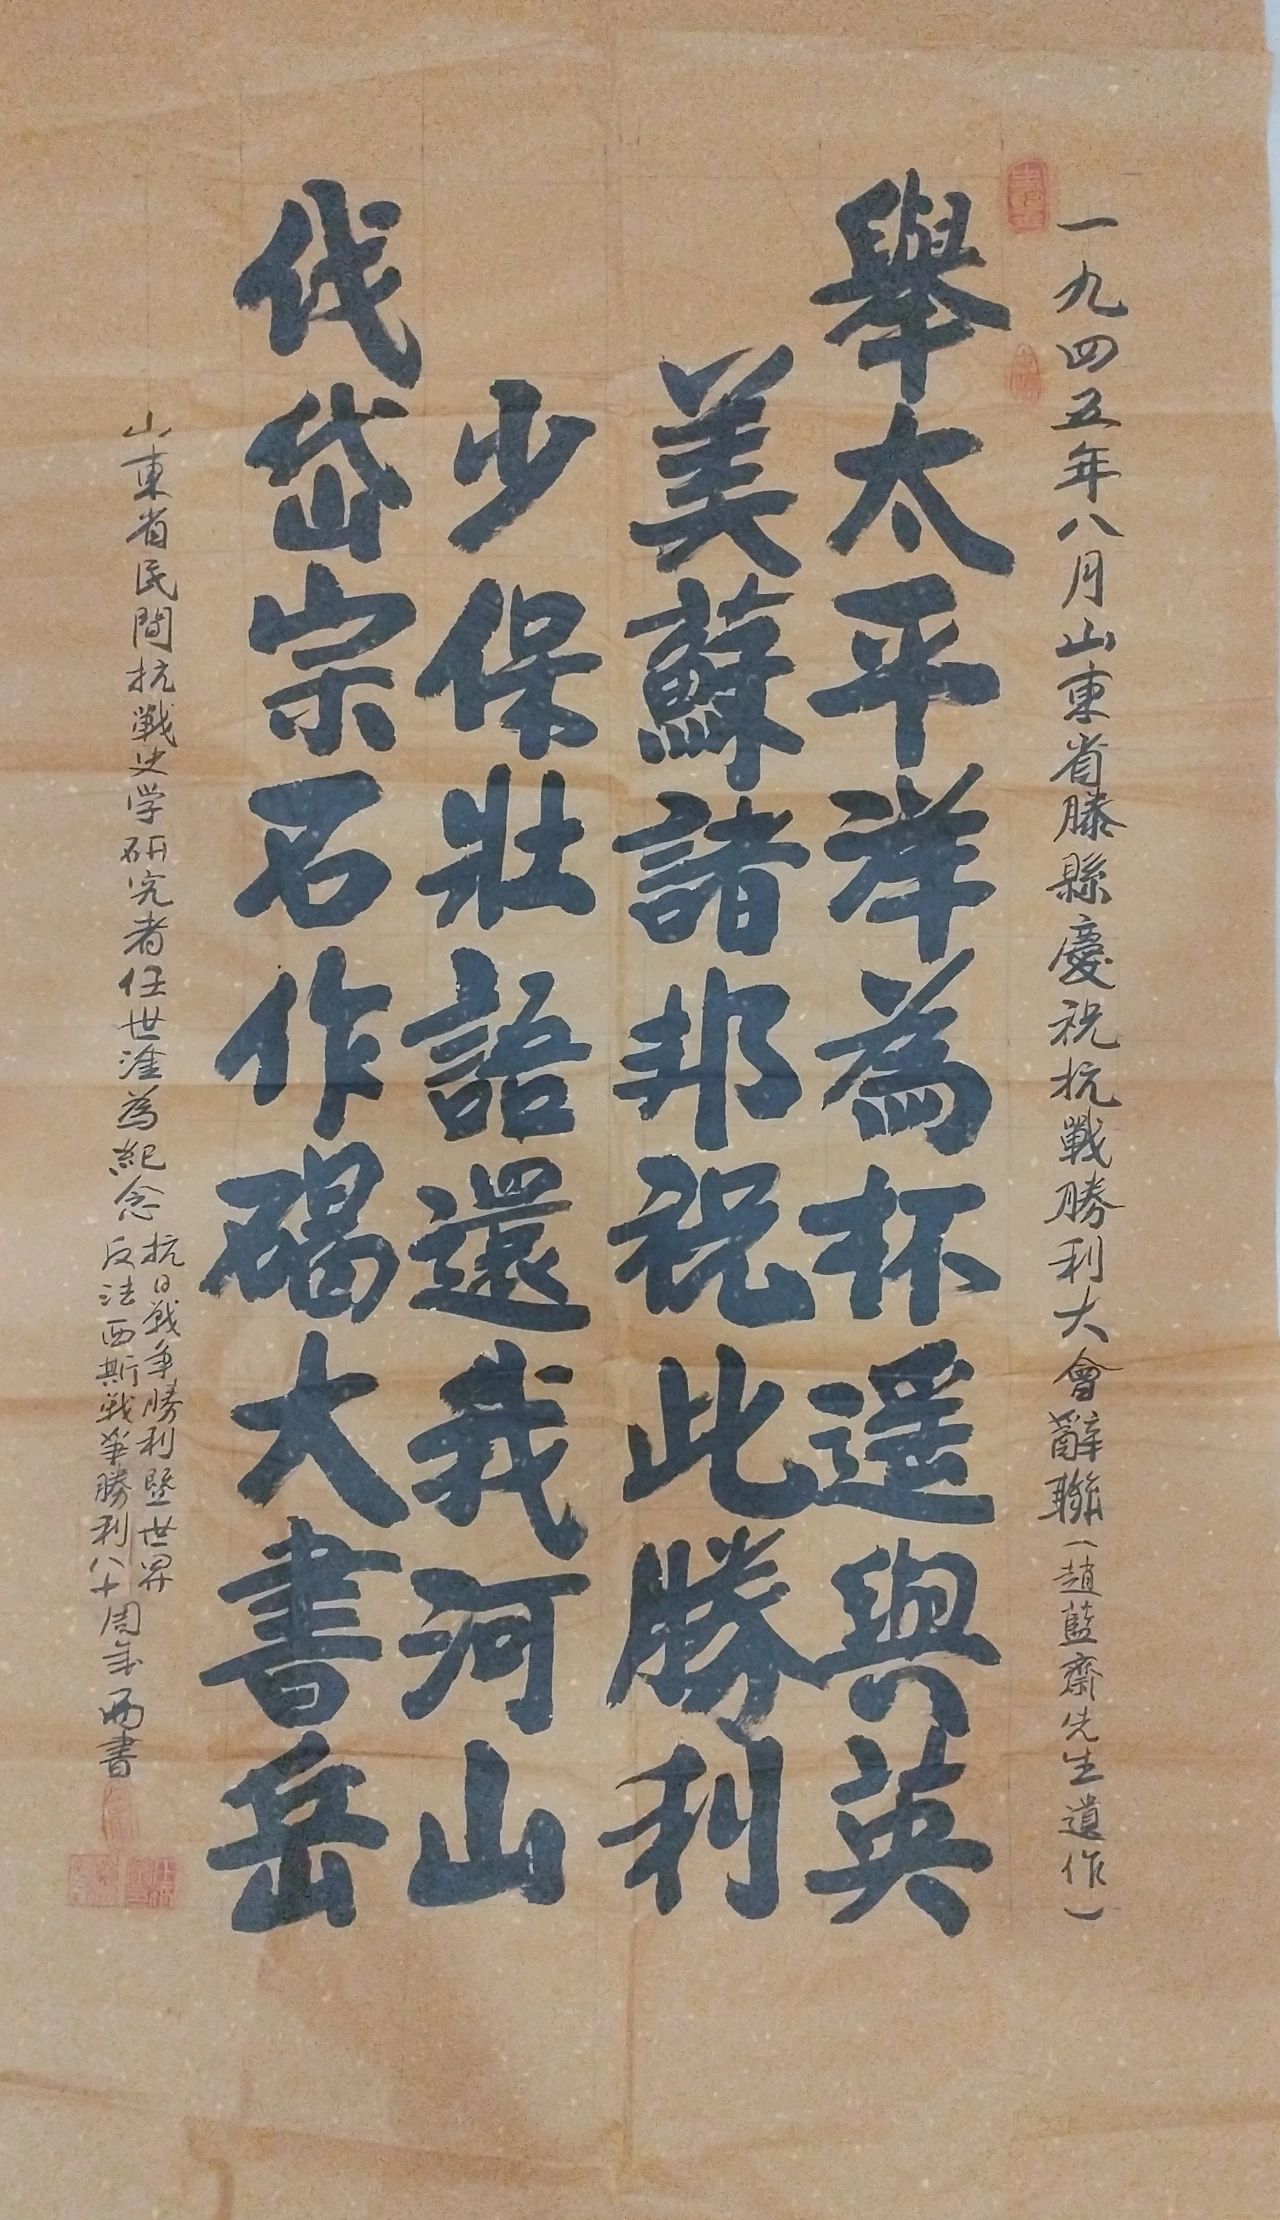 一九四五年八月山東省滕縣慶祝抗戰勝利大會辭聯(趙藍齋先生遺作)
舉太平洋為杯遥與英
美蘇諸邦祝此勝利
伐岱宗石作碣大書岳
少保壯語還我河山
山東省民間抗戰史学研究者任世淦為紀念
抗日戰争勝利暨世界
反法西斯戰争勝利八十周年而書